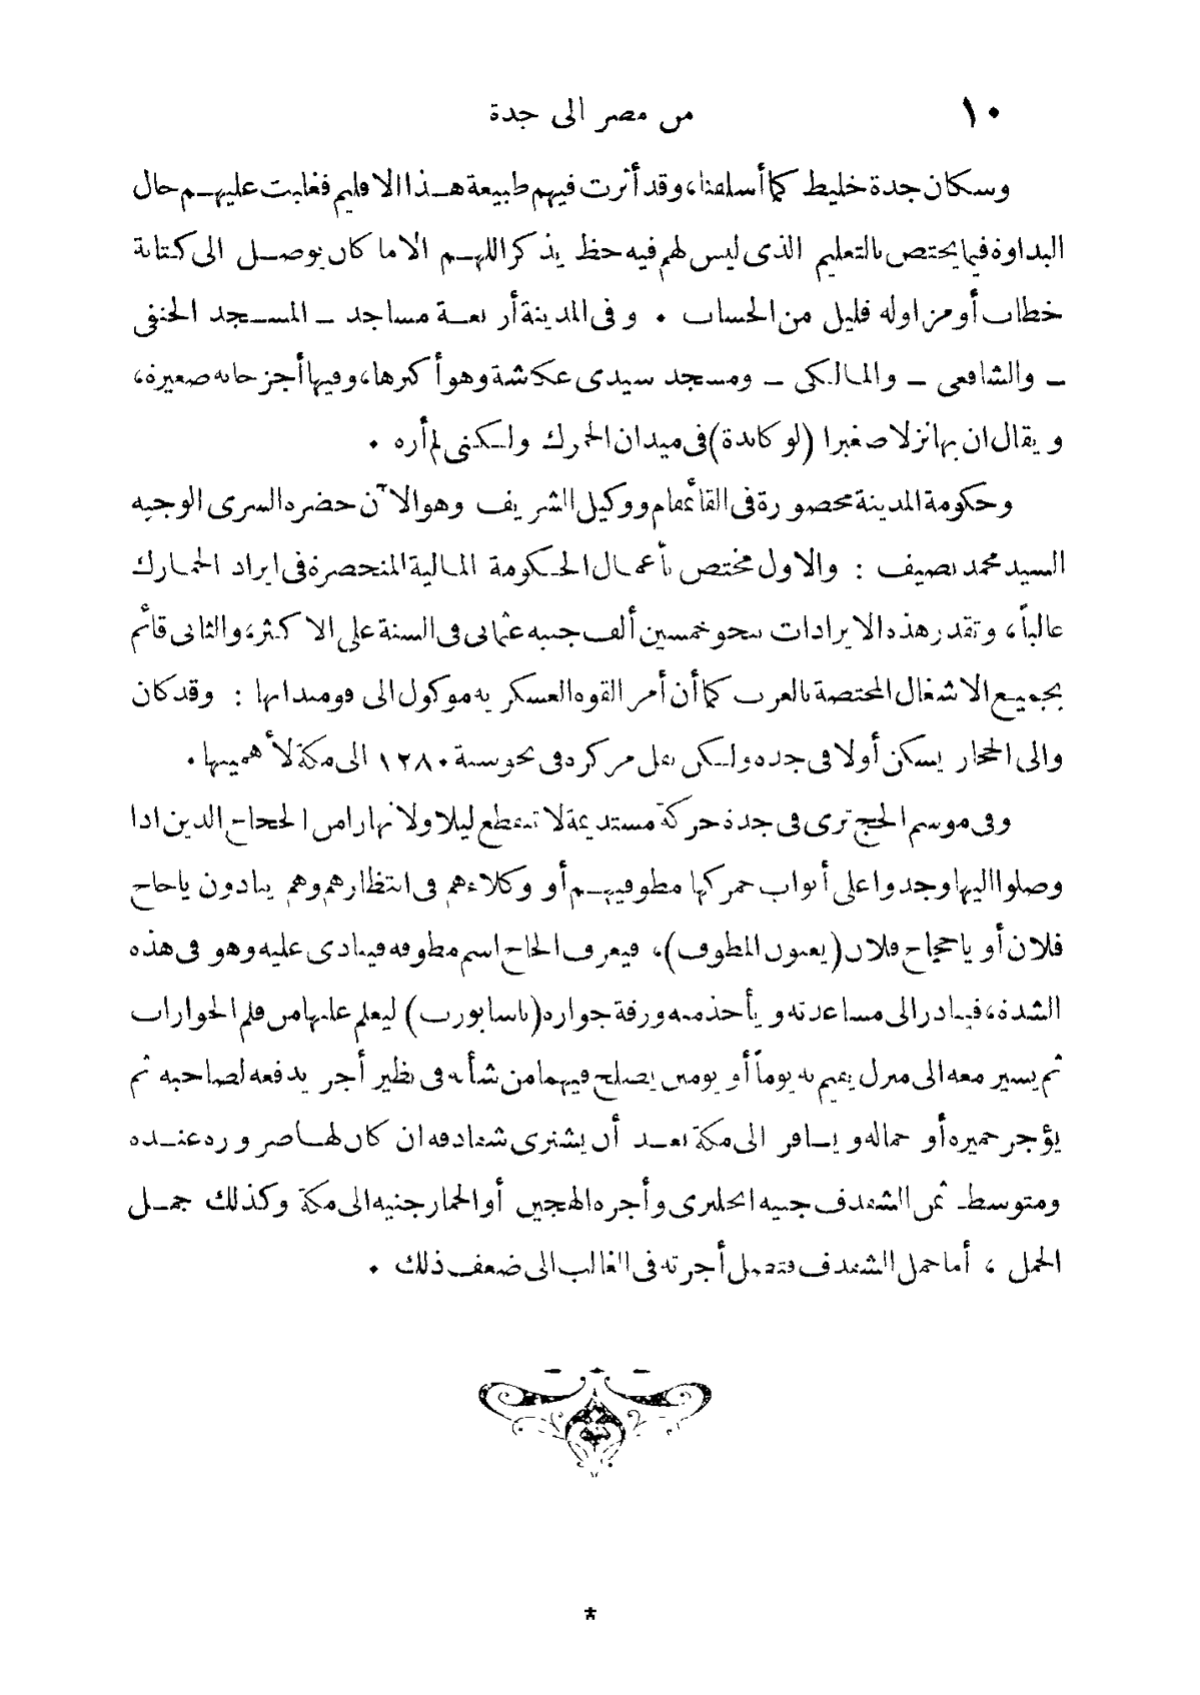 ١٠
من مصر الى جدة
وسكان جدة خليط كما أسلفنا، وقد أثرت فيهم طبيعة هذا الاقليم فغلبت عليهم حال
البداوة فيما يختص بالتعليم الذى ليس لهم فيه حظ يذكر اللهم الا ما كان يوصل الى كتابة
خطاب أو مزاولة قليل من الحساب . وفى المدينة أربعة مساجد ــ المسجد الحنفى
ــ والشافعى ــ والمالكى ــ ومسجد سيدى عكاشة وهو أكبرها، وفيها أجزخانه صغيرة،
ويقال ان بها نزلا صغيرا (لوكاندة) فى ميدان الجمرك ولكنى لم أره .
وحكومة المدينة محصورة فى القائمقام ووكيل الشريف وهو الآن حضره السرى الوجيه
السيد محمد نصيف : والاول مختص بأعمال الحكومة المالية المنحصرة فى ايراد الجمارك
غالباً، وتقدر هذه الايرادات بنحو خمسين ألف جنيه عثمانى فى السنة على الاكثر، والثانى قائم
بجميع الاشغال المختصة بالعرب كما أن أمر القوه العسكريه موكول الى قومندانها : وقد كان
والى الحجاز يسكن أولا فى جده ولكن نقل مركزه فى نحو سنة ١٢٨٠ الى مكة لأهميتها .
وفى موسم الحج ترى فى جدة حركة مستديمة لا تنقطع ليلا ولا نهارا من الحجاج الذين اذا
وصلوا اليها وجدوا على أبواب جمركها مطوفيهم أو وكلاءهم فى انتظارهم وهم ينادون يا حاج
فلان أو يا حجاج فلان (يعنون المطوف)، فيعرف الحاج اسم مطوفه فينادى عليه وهو فى هذه
الشدة، فيبادر الى مساعدته ويأخذ منه ورقة جوازه (باسابورت) ليعلم عليها من قلم الجوازات
ثم يسير معه الى منزل يقيم به يوماً أو يومين يصلح فيهما من شأنه فى نظير أجر يدفعه لصاحبه ثم
يؤجر حميره أو جماله ويسافر الى مكة بعد أن يشترى شقادفه ان كان لها ضرورة عنده
ومتوسط ثمن الشقدف جنيه انجليزى وأجره الهجين أو الحمار جنيه الى مكة وكذلك جمل
الحمل ، أما جمل الشقدف فتصل أجرته فى الغالب الى ضعف ذلك .
*